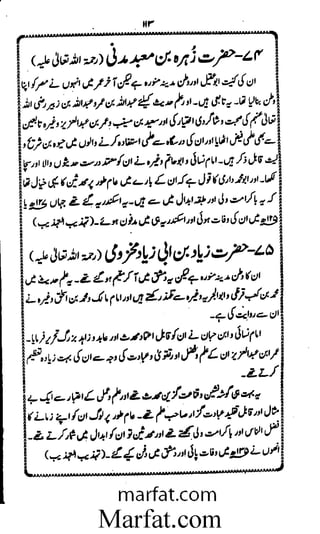 ۱۱۳
۷۴- حضرت زُہرہ بن معبد مدنی (رحمۃ اللہ تعالیٰ علیہ)
ان کی کنیت ابو عقیل اور وطن مدینہ منورہ ہے لیکن آخر عمر میں انہوں نے مصر کو اپنا
وطن بنا لیا تھا۔ یہ تابعی ہیں۔ اور علم حدیث کیلئے عبداللہ بن عمرو عبداللہ بن زبیر رضی اللہ
تعالیٰ عنہم کی صحبت و شاگردی اختیار کی اور سعید بن مسیب و عمر بن عبدالعزیز وغیرہ تابعین
سے بھی علمی فیض اٹھایا اور ان کی درسگاہ سے علمی استفادہ کرنے والوں میں حیوہ بن شریح و
لیث قابل ذکر ہیں۔ امام نسائی و ابو حاتم وغیرہ نے ان کو معتمد درست حدیثوں والا اور سچا
لکھا۔ اور ابو محمد دارمی کا قول ہے کہ ان کے بارے میں عام طور پر محدثین کا یہی خیال تھا
کہ یہ باکرامت ولی اور طبقہ ابدال میں سے ہیں۔ یہ اسکندریہ گئے تھے جہاں ۱۲۷ھ یا
۱۳۵ھ میں ان کی وفات ہوئی اور اسکندریہ ہی میں مدفون ہوئے۔ (تہذیب التہذیب)
۷۵- حضرت زیاد بن ابی زیاد مخزومی (رحمۃ اللہ تعالیٰ علیہ)
ان کا وطن مدینہ منورہ ہے لیکن یہ دمشق میں آ کر مقیم ہو گئے تھے۔ یہ علم حدیث میں
محمد بن کعب قرظی و ابوالبحریہ وغیرہ سے تلمذ رکھتے ہیں اور امام مالک و محمد بن اسحٰق وغیرہ نے
ان سے روایت کی ہے۔
امام نسائی و ابن حبان نے ان کو قابل اعتماد محدث اور عابد و زاہد بزرگ تحریر فرمایا۔
عمر ابن عبدالعزیز ان کے علم و فضل اور تقویٰ و عبادت کی وجہ سے ان کی بہت زیادہ تعظیم
کرتے تھے۔
یہ بہت ہی گوشہ نشین و قناعت گزیں محدث تھے اور علم و عمل کے اعتبار سے ایک بے
مثال اور قابل تقلید عبادت گزار صاحب علم تھے۔ عام طور پر لوگ ان کو اپنے زمانے کا
افضل الناس اور باکرامت ولی سمجھتے تھے اور محدثین تو ان کو ابدال میں شمار کرتے تھے۔
انھوں نے ۱۳۵ھ میں وفات پائی اور دمشق میں دفن کیے گئے۔ (تہذیب التہذیب)
marfat.com
Marfat.com